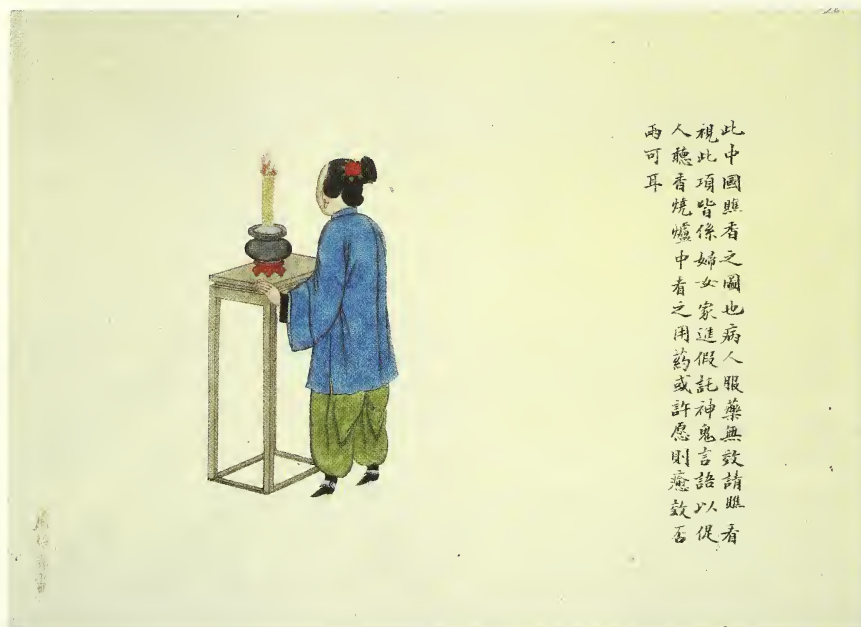 此中國瞧香之圖也病人服藥無效請瞧看
視此項皆係婦女家進假託神鬼言語以促
人聽香燒爐中看之用藥或許愿則癒效否
兩可耳